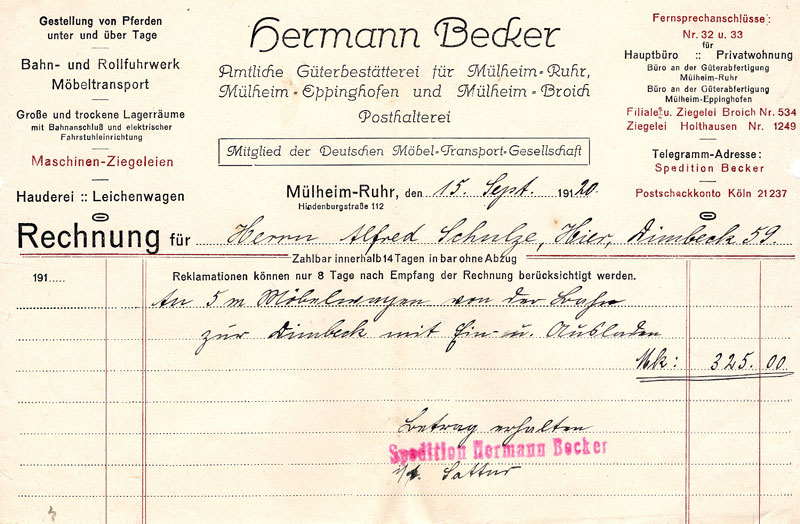 Gestellung von Pferden
unter und über Tage
Bahn- und Rollfuhrwerk
Möbeltransport
Große und trockene Lagerräume
mit Bahnanschluß und elektrischer
Fahrstuhleinrichtung
Maschinen-Ziegeleien
Hauderei :: Leichenwagen
Hermann Becker
Amtliche Güterbestätterei für Mülheim-Ruhr,
Mülheim-Eppinghofen und Mülheim-Broich
Posthalterei
Mitglied der Deutschen Möbel-Transport-Gesellschaft
Fernsprechanschlüsse:
Nr. 32 u. 33
für
Hauptbüro :: Privatwohnung
Büro an der Güterabfertigung
Mülheim-Ruhr
Büro an der Güterabfertigung
Mülheim-Eppinghofen
Filiale u. Ziegelei Broich Nr. 534
Ziegelei Holthausen Nr. 1249
Telegramm-Adresse:
Spedition Becker
Postscheckkonto Köln 21237
Mülheim-Ruhr, den 15. Sept. 1920
Hindenburgstraße 112
Rechnung für Herrn Alfred Schulze, Hier, Dimbeck 59.
Zahlbar innerhalb 14 Tagen in bar ohne Abzug
191 Reklamationen können nur 8 Tage nach Empfang der Rechnung berücksichtigt werden.
An 5 m Möbelwagen von der Bahn
zur Dimbeck mit Ein- u. Ausladen
Mk: 325.00.
Betrag erhalten
Spedition Hermann Becker